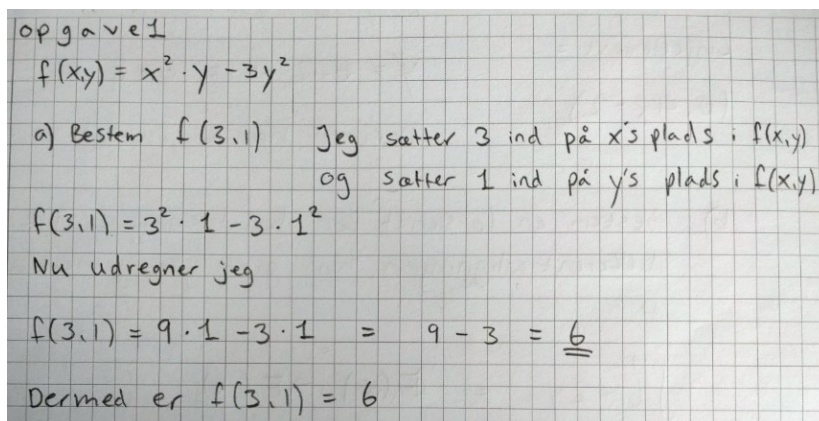 opgave 1
f(x,y) = x² · y - 3y²
a) Bestem f(3,1) Jeg sætter 3 ind på x's plads i f(x,y)
og sætter 1 ind på y's plads i f(x,y)
f(3,1) = 3² · 1 - 3 · 1²
Nu udregner jeg
f(3,1) = 9 · 1 - 3 · 1 = 9 - 3 = 6
Dermed er f(3,1) = 6